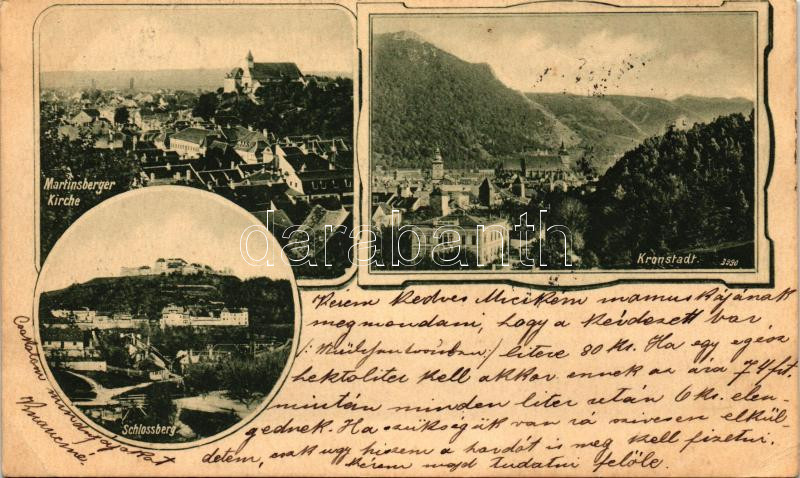 Martinsberger
Kirche
Kronstadt.
3250
Schlossberg
darabanth
Kérem kedves Micikém mamuskájának
megmondani, hogy a kérdezett bor
litere 80 kr. Ha egy egész
hektoliter kell akkor ennek az ára 74 frt.
mintán minden liter után 6 kr. elen-
gednek. Ha szükségük van rá szivesen elkül-
detem, csak ugy hiszem a hordót is meg kell fizetni.
kérem majd tudatni felőle.
Csókolom mindnyájokat